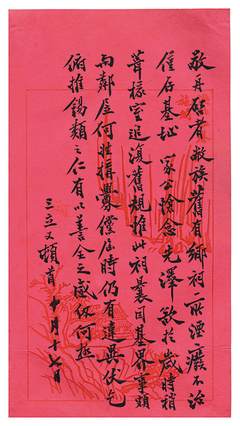 敬再啟者敝族舊有鄉祠一所湮廢不治
僅存基址家公愴念先澤欲於歲時稍
葺椽室追復舊規惟此祠曩因基界事頗
與鄰屋何姓構釁儻屆時仍有違異伏乞
俯推錫類之仁有以善全之感仰何極
三立又頓首 十月十七日